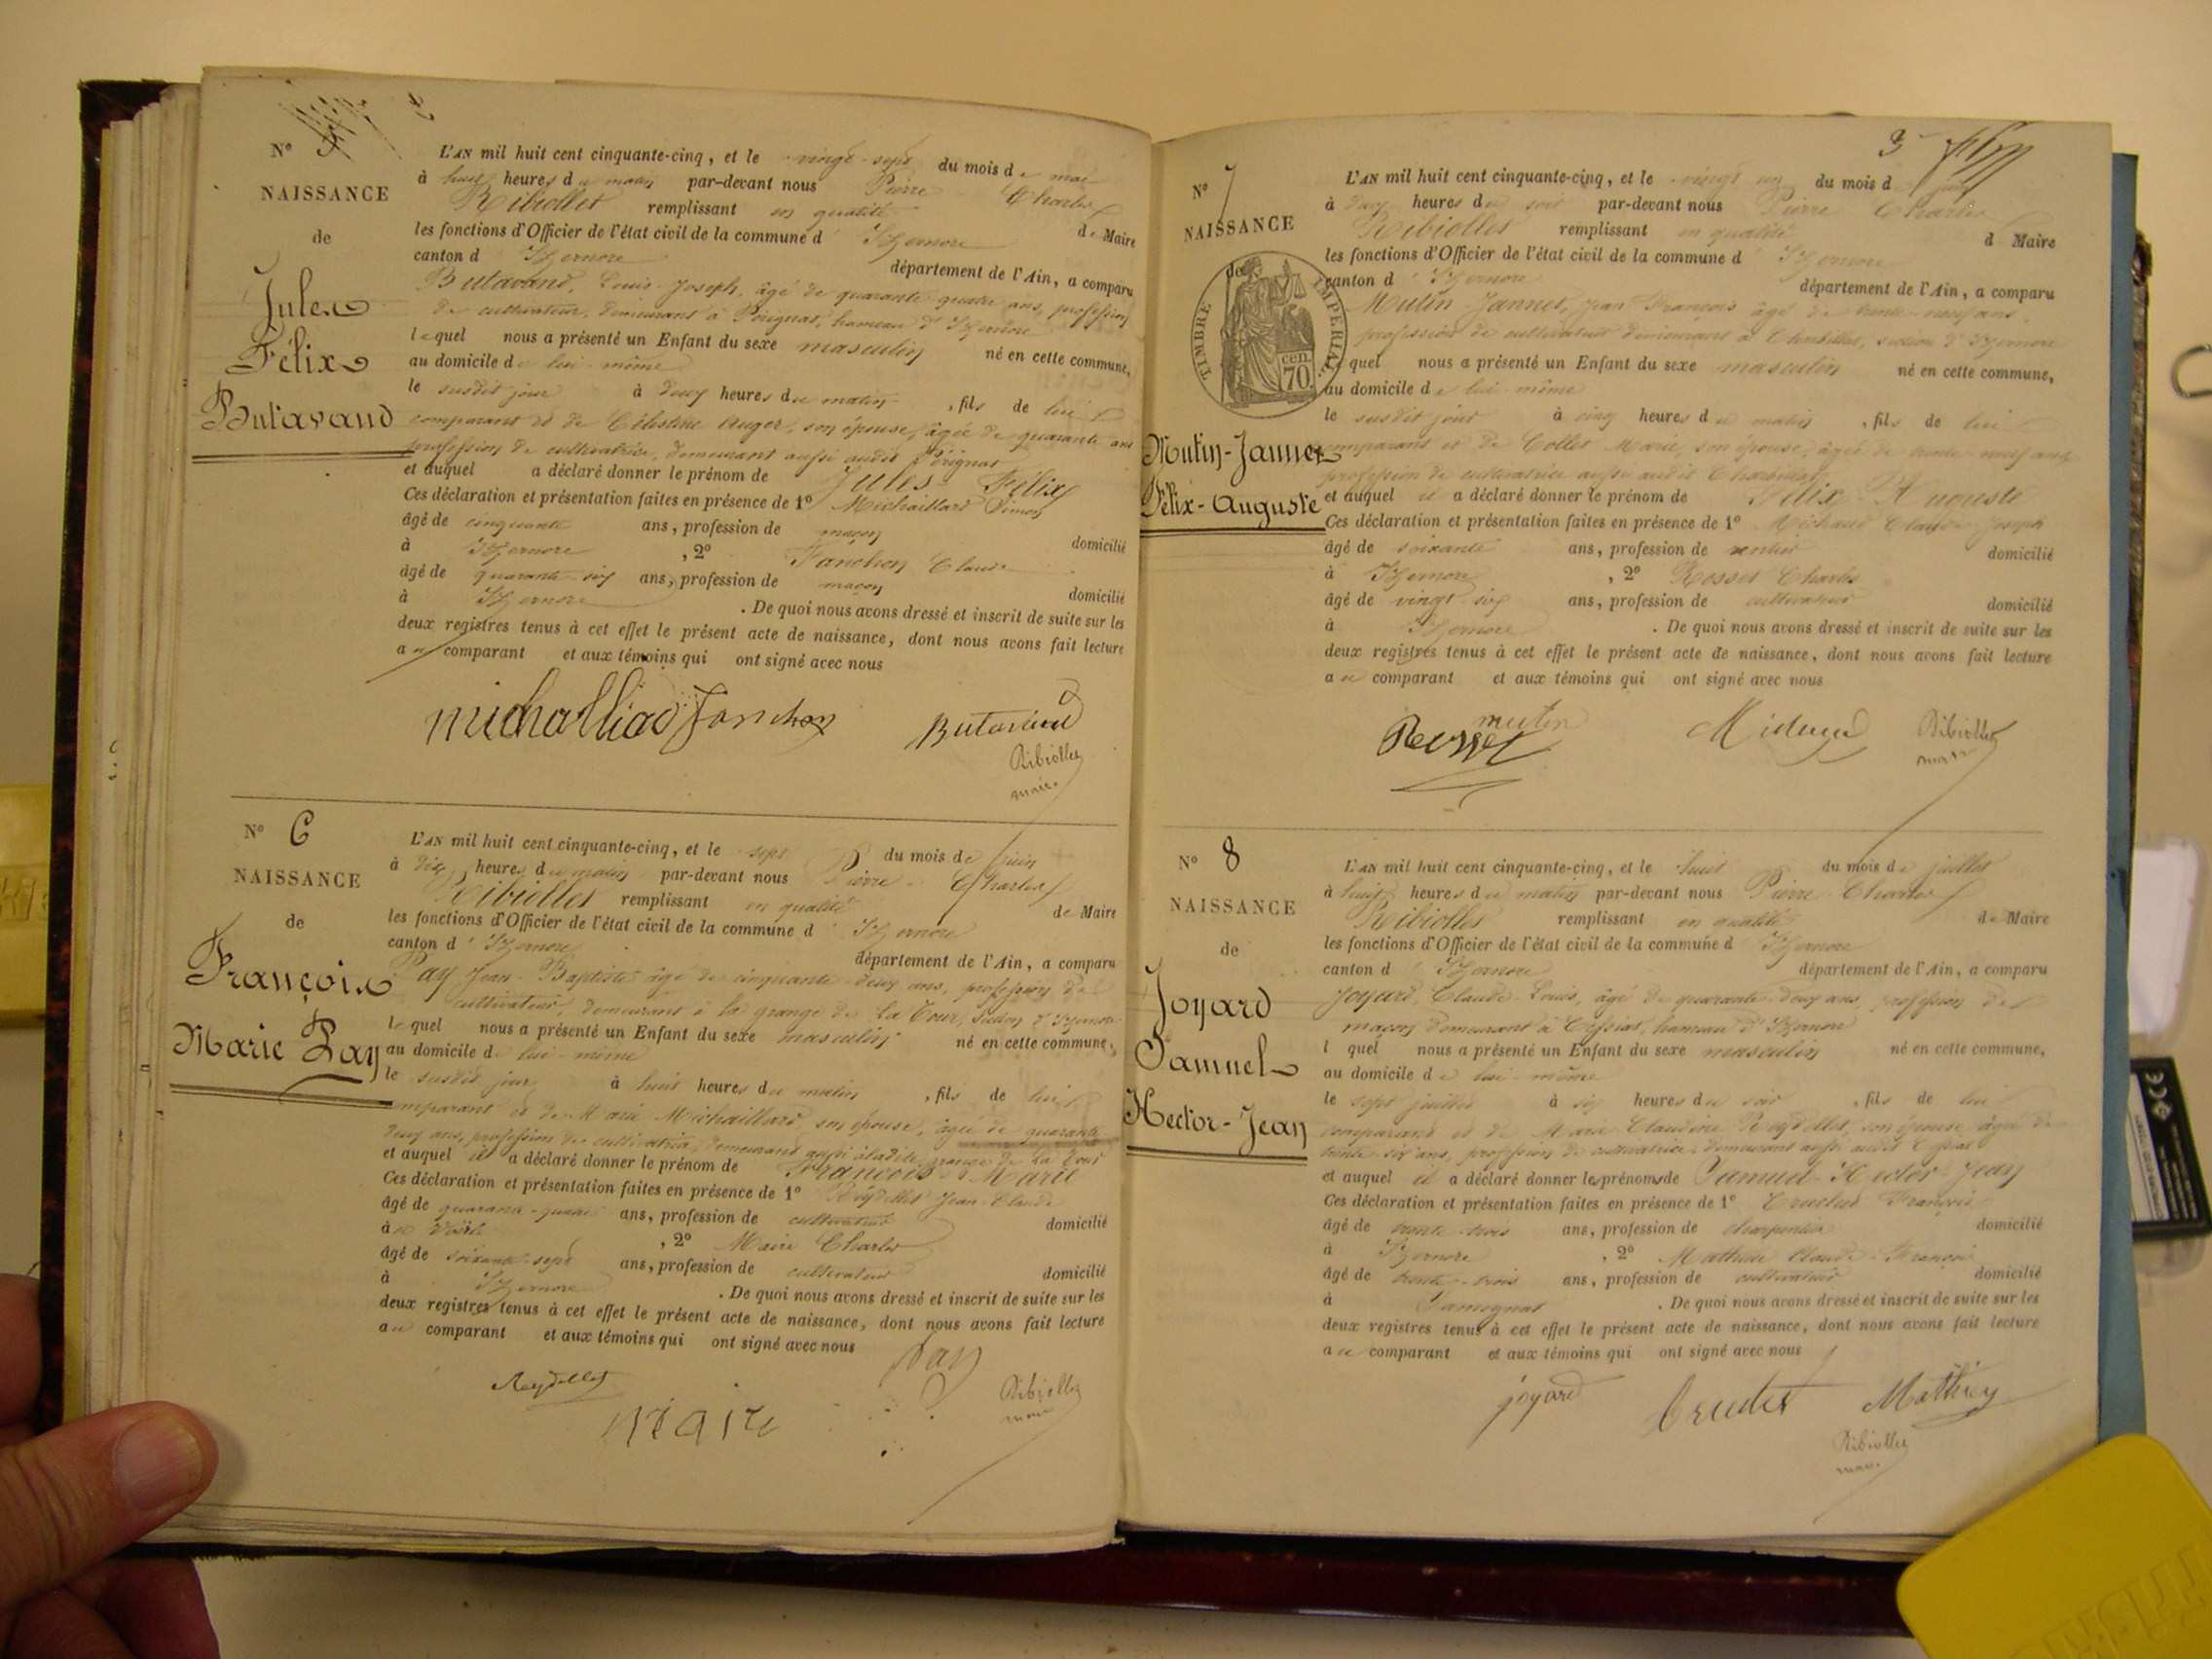 N° 5
NAISSANCE
de
Jules
Félix
Butavand
L'AN mil huit cent cinquante-cinq, et le vingt-sept du mois de mai
à huit heures du matin par-devant nous Pierre Charles
Ribiollet remplissant en qualité de Maire
les fonctions d'Officier de l'état civil de la commune d'Izernore
canton d'Izernore département de l'Ain, a comparu
Butavand, Louis Joseph, âgé de quarante quatre ans, profession
de cultivateur, demeurant à Pérignat, hameau d'Izernore
lequel nous a présenté un Enfant du sexe masculin né en cette commune,
au domicile de lui-même
le susdit jour à deux heures du matin, fils de lui
comparant et de Célestine Auger, son épouse, âgée de quarante ans
profession de cultivatrice, demeurant aussi audit Pérignat
et auquel a déclaré donner le prénom de Jules Félix
Ces déclaration et présentation faites en présence de 1° Michaillard Simon
âgé de cinquante ans, profession de maçon domicilié
à Izernore, 2° Fanchon Claude
âgé de quarante-six ans, profession de maçon domicilié
à Izernore. De quoi nous avons dressé et inscrit de suite sur les
deux registres tenus à cet effet le présent acte de naissance, dont nous avons fait lecture
au comparant et aux témoins qui ont signé avec nous
michalliad fanchon Butavand
Ribiollet
maire
N° 6
NAISSANCE
de
François
Marie Pay
L'AN mil huit cent cinquante-cinq, et le sept du mois de juin
à dix heures du matin par-devant nous Pierre Charles
Ribiollet remplissant en qualité de Maire
les fonctions d'Officier de l'état civil de la commune d'Izernore
canton d'Izernore département de l'Ain, a comparu
Pay Jean-Baptiste âgé de cinquante-deux ans, profession de
cultivateur, demeurant à la grange de La Tour, section d'Izernore
lequel nous a présenté un Enfant du sexe masculin né en cette commune,
au domicile de lui-même
le susdit jour à huit heures du matin, fils de lui
comparant et de Marie Michaillard, son épouse, âgée de quarante
deux ans, profession de cultivatrice, demeurant aussi à ladite grange de La Tour
et auquel il a déclaré donner le prénom de François Marie
Ces déclaration et présentation faites en présence de 1° Reydellet Jean-Claude
âgé de quarante-quatre ans, profession de cultivateur domicilié
à , 2° Maire Charles
âgé de soixante-sept ans, profession de cultivateur domicilié
à Izernore. De quoi nous avons dressé et inscrit de suite sur les
deux registres tenus à cet effet le présent acte de naissance, dont nous avons fait lecture
au comparant et aux témoins qui ont signé avec nous
Pay
Reydellet Ribiollet
maire
Maire
3
N° 7
NAISSANCE
de
TIMBRE IMPERIAL
70 cen
Mutin-Jannet
Félix-Auguste
L'AN mil huit cent cinquante-cinq, et le vingt un du mois de juin
à deux heures du soir par-devant nous Pierre Charles
Ribiollet remplissant en qualité d Maire
les fonctions d'Officier de l'état civil de la commune d'Izernore
canton d'Izernore département de l'Ain, a comparu
Mutin-Jannet, Jean François âgé de trente-neuf ans,
profession de cultivateur demeurant à Charbillat, section d'Izernore
lequel nous a présenté un Enfant du sexe masculin né en cette commune,
au domicile de lui-même
le susdit jour à cinq heures du matin, fils de lui
comparant et de Collet Marie, son épouse, âgée de trente-neuf ans
profession de cultivatrice aussi audit Charbillat
et auquel il a déclaré donner le prénom de Félix Auguste
Ces déclaration et présentation faites en présence de 1° Michaud Claude-Joseph
âgé de soixante ans, profession de rentier domicilié
à Izernore, 2° Rosset Charles
âgé de vingt-six ans, profession de cultivateur domicilié
à Izernore. De quoi nous avons dressé et inscrit de suite sur les
deux registres tenus à cet effet le présent acte de naissance, dont nous avons fait lecture
au comparant et aux témoins qui ont signé avec nous
mutin
Rosset Michaud Ribiollet
maire
N° 8
NAISSANCE
de
Joyard
Samuel
Hector-Jean
L'AN mil huit cent cinquante-cinq, et le huit du mois de juillet
à huit heures du matin par-devant nous Pierre Charles
Ribiollet remplissant en qualité de Maire
les fonctions d'Officier de l'état civil de la commune d'Izernore
canton d'Izernore département de l'Ain, a comparu
Joyard, Claude-Louis, âgé de quarante-deux ans, profession de
maçon demeurant à Ceyssiat, hameau d'Izernore
l quel nous a présenté un Enfant du sexe masculin né en cette commune,
au domicile de lui-même
le sept juillet à six heures du soir, fils de lui
comparant et de Marie Claudine Reydellet, son épouse âgée de
trente-six ans, profession de cultivatrice demeurant aussi audit
et auquel il a déclaré donner les prénoms de Samuel-Hector-Jean
Ces déclaration et présentation faites en présence de 1° François
âgé de trente-trois ans, profession de charpentier domicilié
à Izernore, 2° Claude-François
âgé de trente-trois ans, profession de cultivateur domicilié
à Samognat. De quoi nous avons dressé et inscrit de suite sur les
deux registres tenus à cet effet le présent acte de naissance, dont nous avons fait lecture
au comparant et aux témoins qui ont signé avec nous
joyard Mathieu
Ribiollet
maire